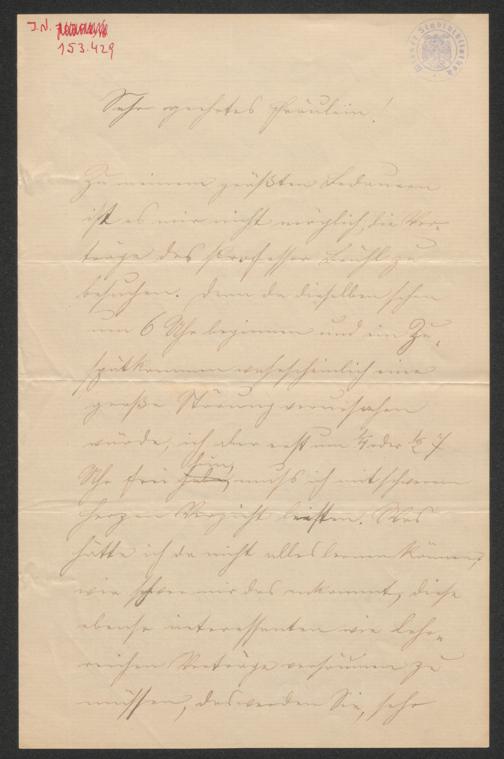 J.N.
153.429
Sehr geehrtes Fräulein!
Zu meinem größten Bedauern
ist es mir nicht möglich, die Vor-
träge des Professor Brühl zu
besuchen. Denn da dieselben schon
um 6 Uhr beginnen und ein Zu-
spätkommen wahrscheinlich eine
große Störung verursachen
würde, ich aber erst um ¼ oder ½ 7
Uhr frei bin, muß ich mit schwerem
Herzen Verzicht leisten. Was
hätte ich da nicht alles lernen können,
wie schwer mir das ankommt, diese
ebenso interessanten wie lehr-
reichen Vorträge versäumen zu
müssen, das werden Sie, sehr